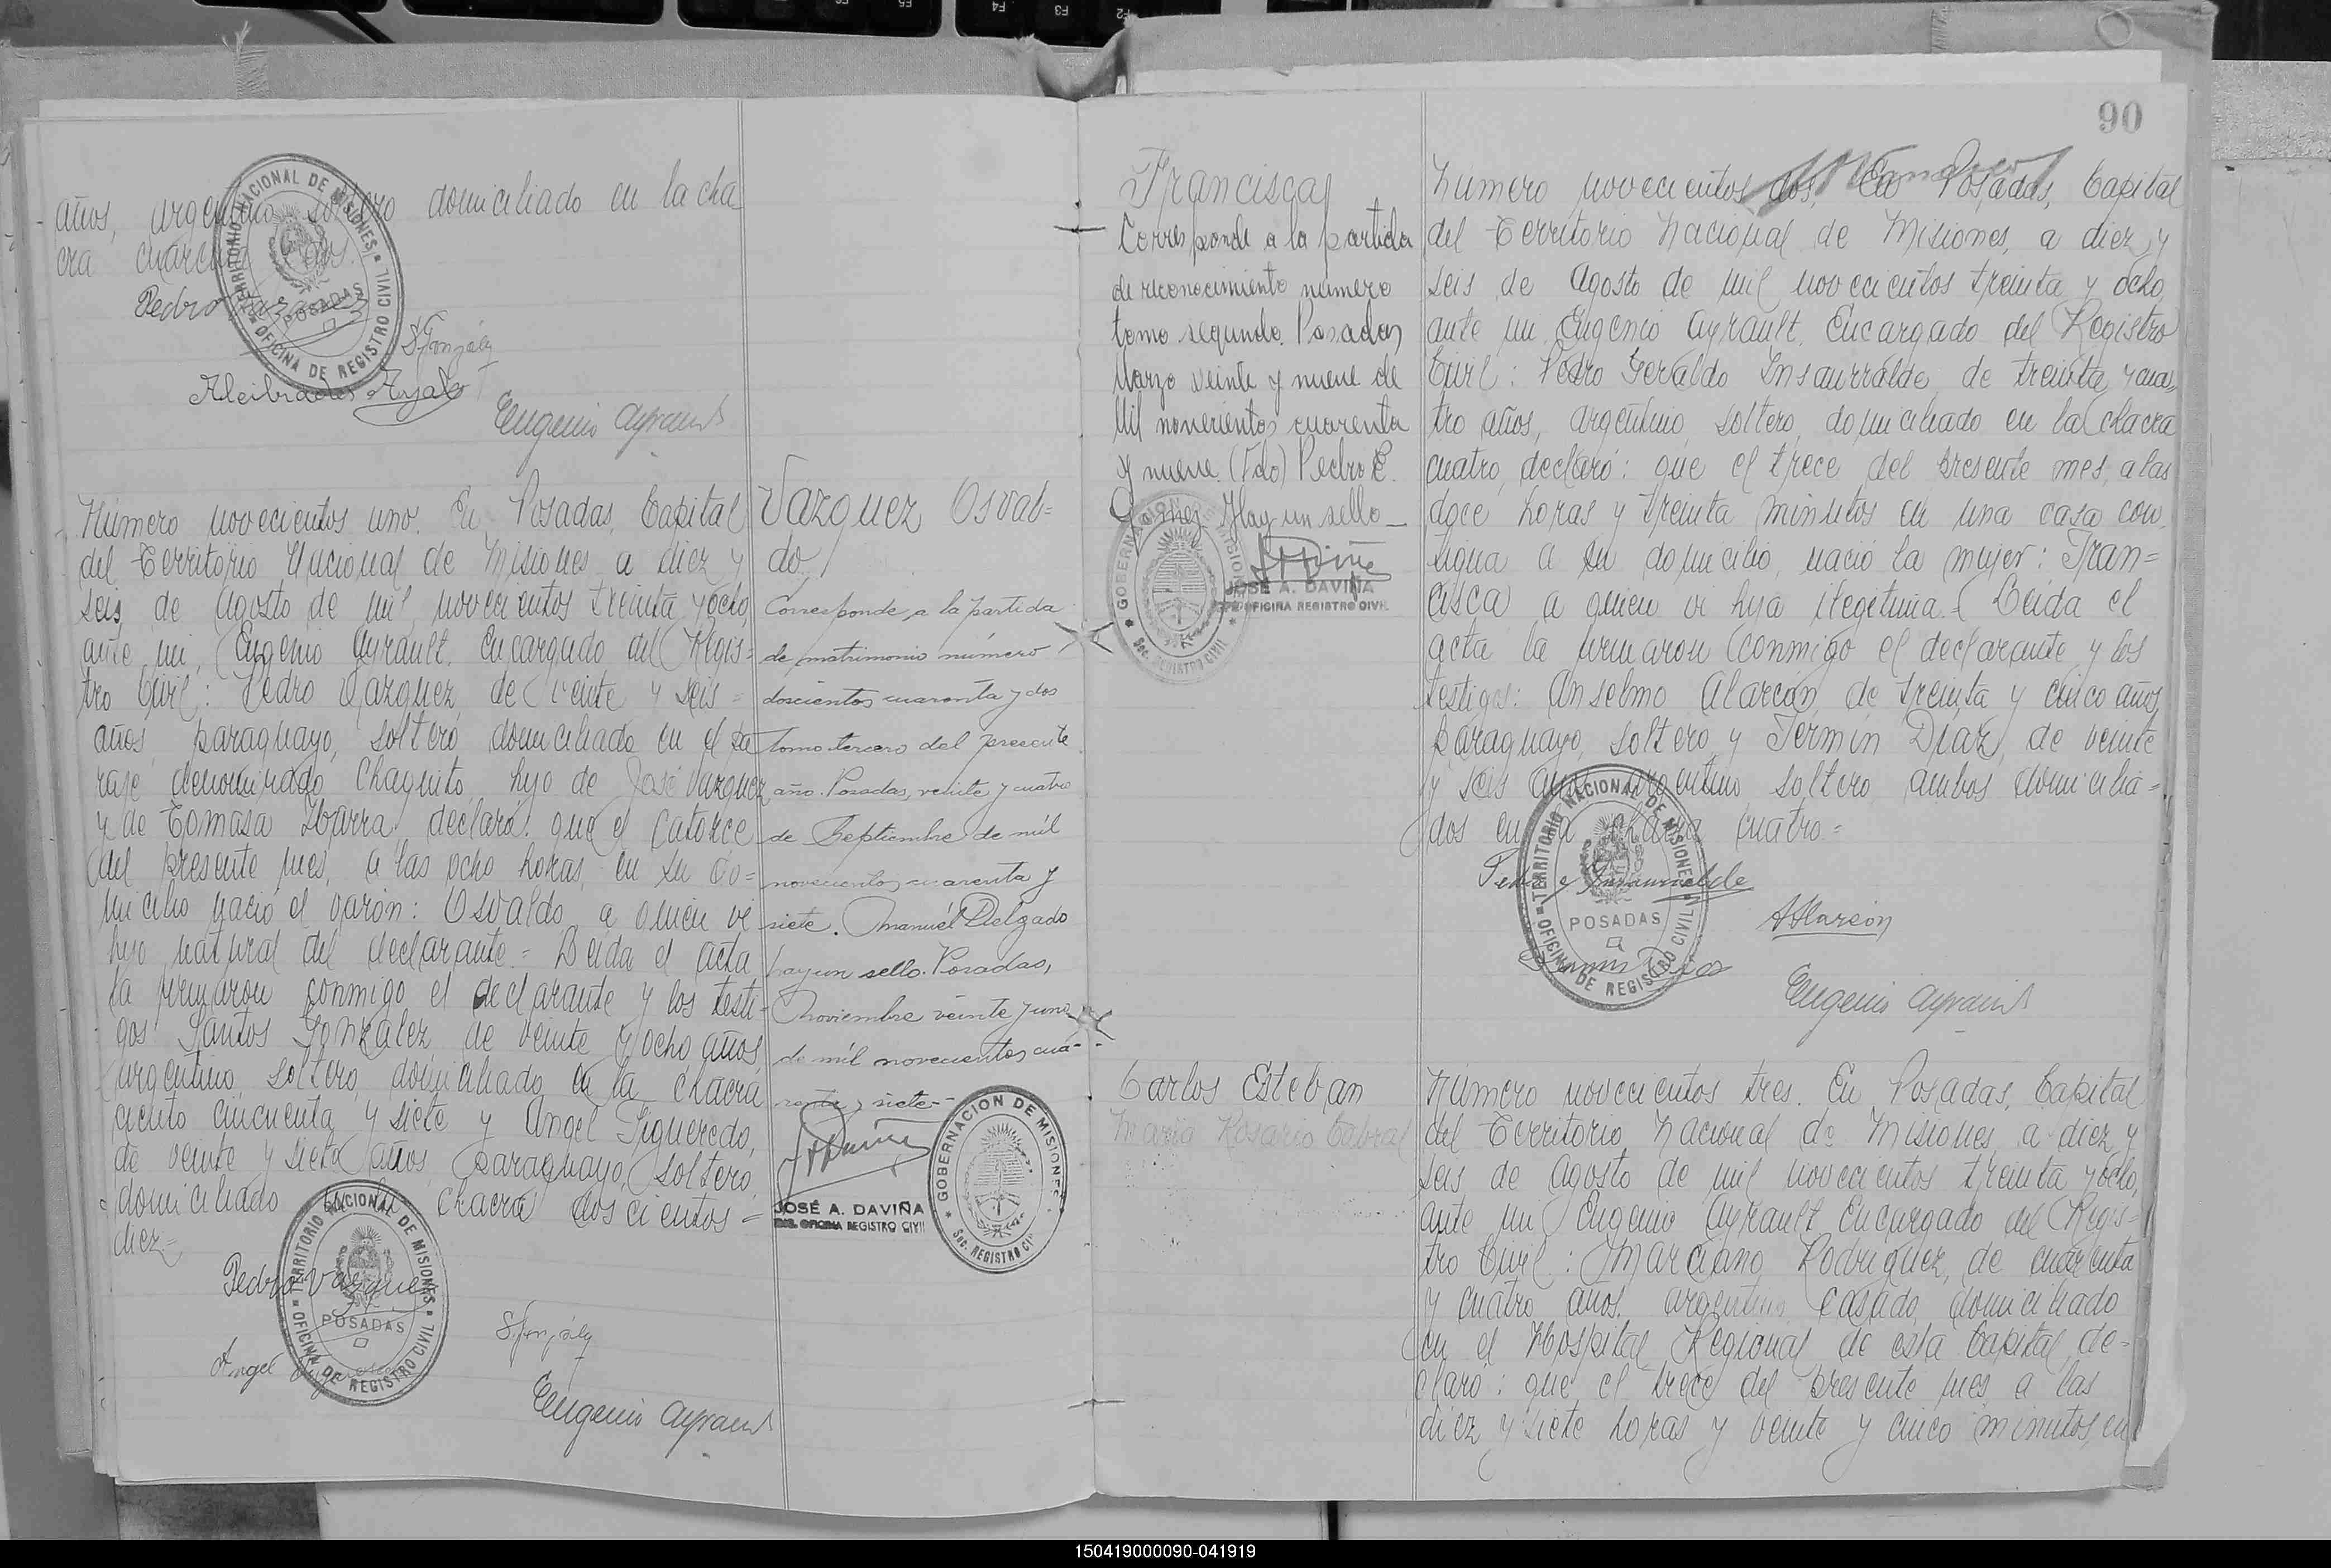 años, argentino soltero domiciliado en la cha
cra cuarenta y dos.
Pedro
S. González
Alcibiades Ayala
Eugenio Ayrault
TERRITORIO NACIONAL DE MISIONES
POSADAS
OFICINA DE REGISTRO CIVIL
Número novecientos uno. En Posadas, Capital
del Territorio Nacional de Misiones a diez y
seis de Agosto de mil novecientos treinta y ocho,
ante mi, Eugenio Ayrault. Encargado del Regis=
tro Civil: Pedro Vazquez de veinte y seis =
años paraguayo, soltero domiciliado en el pa
raje denominado Chaquito, hijo de José Vazquez
y de Tomasa Ibarra, declaró: que el catorce
del presente mes, a las ocho horas, en su do=
micilio nació el varón: Osvaldo, a quien vi
hijo natural del declarante.= Leida el acta
la firmaron conmigo el declarante y los testi-
gos Santos González de veinte y ocho años
argentino, soltero, domiciliado en la chacra
ciento cincuenta y siete y Angel Figueredo,
de veinte y siete años, paraguayo, soltero,
domiciliado en la chacra doscientos =
diez=
Pedro Vazquez
S. González
Angel Figueredo
Eugenio Ayrault
TERRITORIO NACIONAL DE MISIONES
POSADAS
OFICINA DE REGISTRO CIVIL
Vazquez Osval=
do
Corresponde a la partida
de matrimonio número
doscientos cuarenta y dos
tomo tercero del presente
año. Posadas, veinte y cuatro
de Septiembre de mil
novecientos cuarenta y
siete. Manuél Delgado
hay un sello. Posadas,
Noviembre veinte y uno
de mil novecientos cua-
renta y siete.-
JOSÉ A. DAVIÑA
OFICINA REGISTRO CIVIL
GOBERNACION DE MISIONES
Sec. REGISTRO CIVIL
90
Francisca
Corresponde a la partida
de reconocimiento número
tomo segundo. Posadas
Marzo veinte y nueve de
Mil novecientos cuarenta
y nueve. (Fdo) Pedro E.
Gomez Hay un sello_
JOSÉ A. DAVIÑA
OFICINA REGISTRO CIVIL
GOBERNACION DE MISIONES
Sec. REGISTRO CIVIL
Número novecientos dos. En Posadas, Capital
del Territorio Nacional de Misiones, a diez y
seis de Agosto de mil novecientos treinta y ocho,
ante mi Eugenio Ayrault, Encargado del Registro
Civil: Pedro Geraldo Insaurralde, de treinta y cua-
tro años, argentino, soltero, domiciliado en la chacra
cuatro, declaró: que el trece del presente mes, a las
doce horas y treinta minutos en una casa con
tigua a su domicilio, nació la mujer: Fran=
cisca a quien vi hija ilegitima.= Leida el
acta la firmaron conmigo el declarante y los
testigos: Anselmo Alarcón, de treinta y cinco años,
paraguayo, soltero y Fermín Díaz, de veinte
y seis años argentino soltero ambos domicilia=
dos en la chacra cuatro.=
Pedro G Insaurralde
A Alarcón
Fermin Diaz
Eugenio Ayrault
TERRITORIO NACIONAL DE MISIONES
POSADAS
OFICINA DE REGISTRO CIVIL
Carlos Esteban
Maria Rosario Cabral
Número novecientos tres. En Posadas, Capital
del Territorio Nacional de Misiones, a diez y
seis de Agosto de mil novecientos treinta y ocho,
ante mi Eugenio Ayrault Encargado del Regis=
tro Civil: Marciano Rodriguez, de cuarenta
y cuatro años, argentino casado, domiciliado
en el Hospital Regional de esta Capital, de-
claró: que el trece del presente mes a las
diez y siete horas y veinte y cinco minutos, en
150419000090-041919